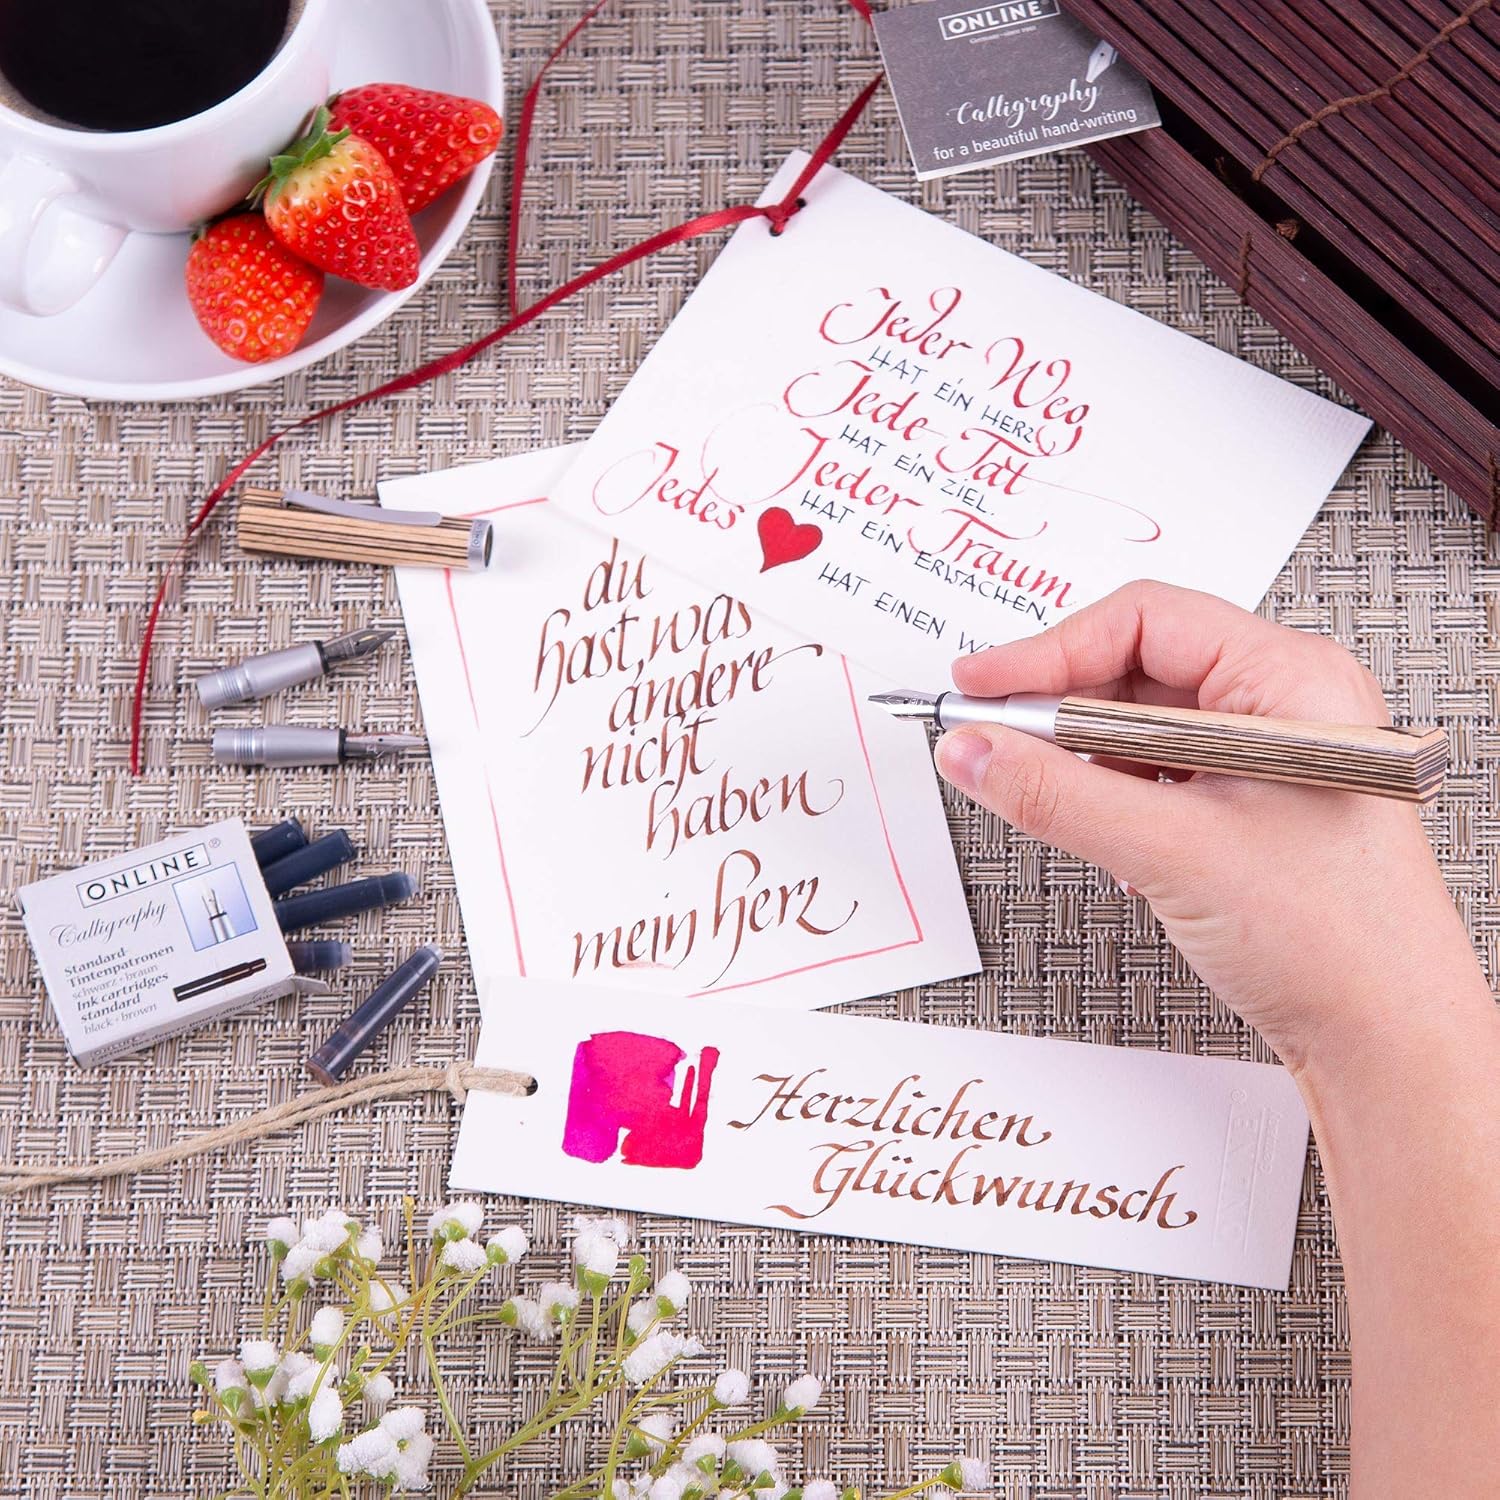 ONLINE
Calligraphy
for a beautiful hand-writing
Jeder Weg
HAT EIN HERZ
Jede Tat
HAT EIN ZIEL.
Jeder Traum
HAT EIN ERWACHEN.
Jedes
HAT EINEN
du
hast, was
andere
nicht
haben
mein herz
ONLINE
ONLINE®
Calligraphy
Standard-
Tintenpatronen
schwarz + braun
Ink cartridges
standard
black + brown
Herzlichen
Glückwunsch
ONLINE